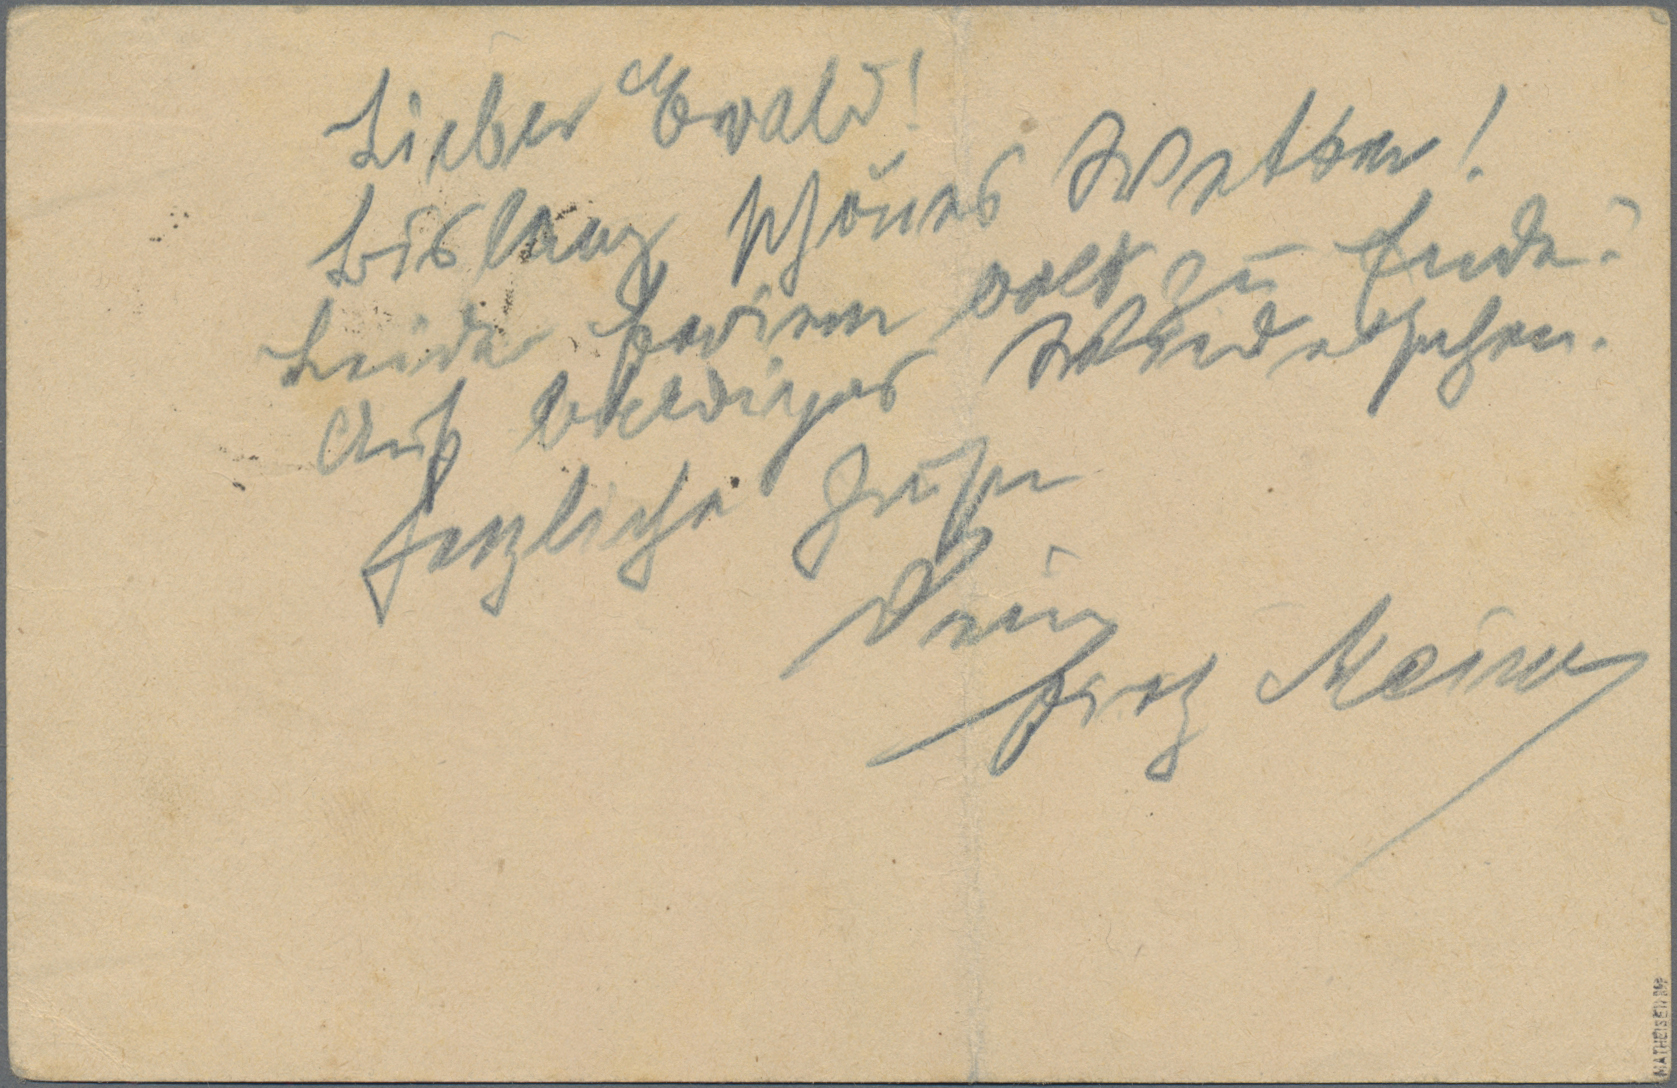 Lieber Ewald!
Bislang schönes Wetter!
Leider Ferien bald zu Ende!
Auf baldiges Wiedersehen.
Herzliche Grüße
Dein
Fritz
MATHEISEN BPP